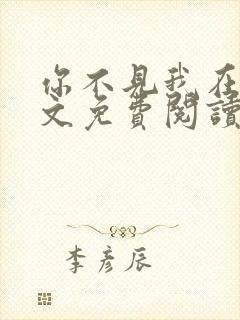 你不見我在
文免費閱讀
李彥辰